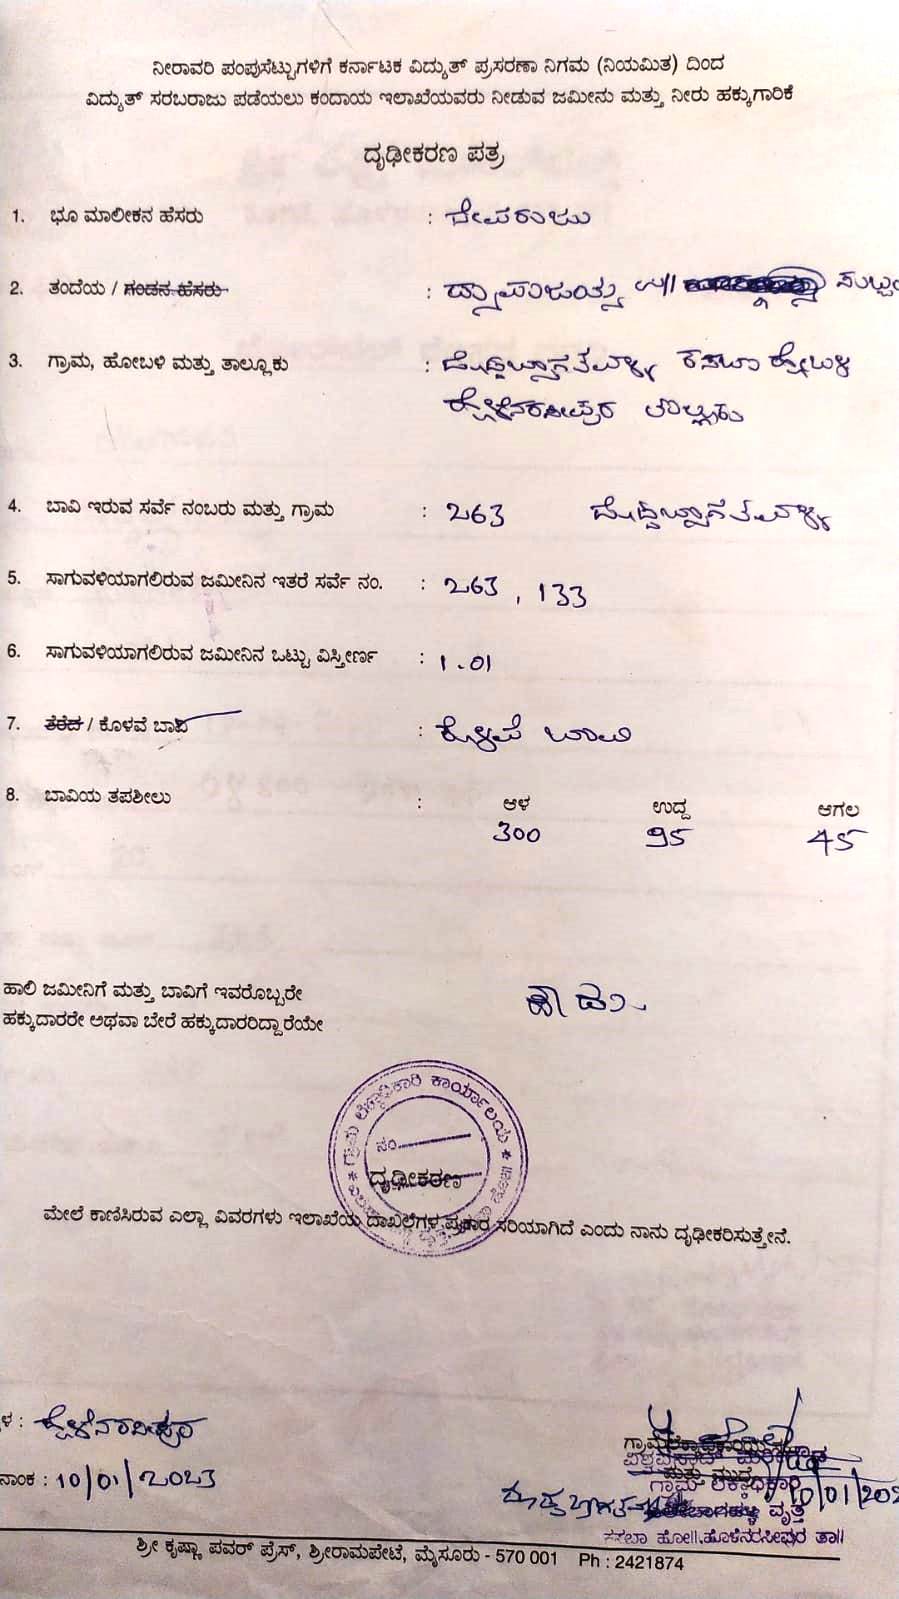 ನೀರಾವರಿ ಪಂಪುಸೆಟ್ಟುಗಳಿಗೆ ಕರ್ನಾಟಕ ವಿದ್ಯುತ್ ಪ್ರಸರಣಾ ನಿಗಮ (ನಿಯಮಿತ) ದಿಂದ
ವಿದ್ಯುತ್ ಸರಬರಾಜು ಪಡೆಯಲು ಕಂದಾಯ ಇಲಾಖೆಯವರು ನೀಡುವ ಜಮೀನು ಮತ್ತು ನೀರು ಹಕ್ಕುಗಾರಿಕೆ
ದೃಢೀಕರಣ ಪತ್ರ
1. ಭೂ ಮಾಲೀಕನ ಹೆಸರು :
2. ತಂದೆಯ / ಗಂಡನ ಹೆಸರು :
3. ಗ್ರಾಮ, ಹೋಬಳಿ ಮತ್ತು ತಾಲ್ಲೂಕು : ಕಸಬಾ ಹೋಬಳಿ
ಹೊಳೆನರಸೀಪುರ ತಾಲ್ಲೂಕು
4. ಬಾವಿ ಇರುವ ಸರ್ವೆ ನಂಬರು ಮತ್ತು ಗ್ರಾಮ : 263
5. ಸಾಗುವಳಿಯಾಗಲಿರುವ ಜಮೀನಿನ ಇತರೆ ಸರ್ವೆ ನಂ. : 263, 133
6. ಸಾಗುವಳಿಯಾಗಲಿರುವ ಜಮೀನಿನ ಒಟ್ಟು ವಿಸ್ತೀರ್ಣ : 1.01
7. ತೆರೆದ / ಕೊಳವೆ ಬಾವಿ : ಕೊಳವೆ ಬಾವಿ
8. ಬಾವಿಯ ತಪಶೀಲು : ಆಳ ಉದ್ದ ಆಗಲ
300 95 45
ಹಾಲಿ ಜಮೀನಿಗೆ ಮತ್ತು ಬಾವಿಗೆ ಇವರೊಬ್ಬರೇ
ಹಕ್ಕುದಾರರೇ ಅಥವಾ ಬೇರೆ ಹಕ್ಕುದಾರರಿದ್ದಾರೆಯೇ ಹೌದು
ಗ್ರಾಮ ಲೆಕ್ಕಾಧಿಕಾರಿ ಕಾರ್ಯಾಲಯ
ನಂ
ದೃಢೀಕರಣ
ಮೇಲೆ ಕಾಣಿಸಿರುವ ಎಲ್ಲಾ ವಿವರಗಳು ಇಲಾಖೆಯ ದಾಖಲೆಗಳ ಪ್ರಕಾರ ಸರಿಯಾಗಿದೆ ಎಂದು ನಾನು ದೃಢೀಕರಿಸುತ್ತೇನೆ.
ಳ : ಹೊಳೆನರಸೀಪುರ
ನಾಂಕ : 10/01/2023
ಮತ್ತು ಮುದ್ರೆ
ಗ್ರಾಮ ಲೆಕ್ಕಾಧಿಕಾರಿ 10/01/202
ವೃತ್ತ
ಕಸಬಾ ಹೋ||, ಹೊಳೆನರಸೀಪುರ ತಾ||
ಶ್ರೀ ಕೃಷ್ಣಾ ಪವರ್ ಪ್ರೆಸ್, ಶ್ರೀರಾಮಪೇಟೆ, ಮೈಸೂರು - 570 001 Ph : 2421874